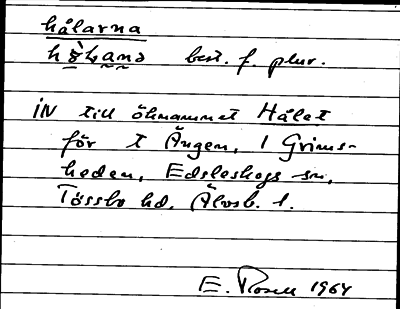 hålarna
best. f. plur.
IN till öknamnet Hålet
för t Ängen, 1 Grims-
heden, Edsleskogs sn,
Tössbo hd, Älvsb. l.
E. Rosell 1964